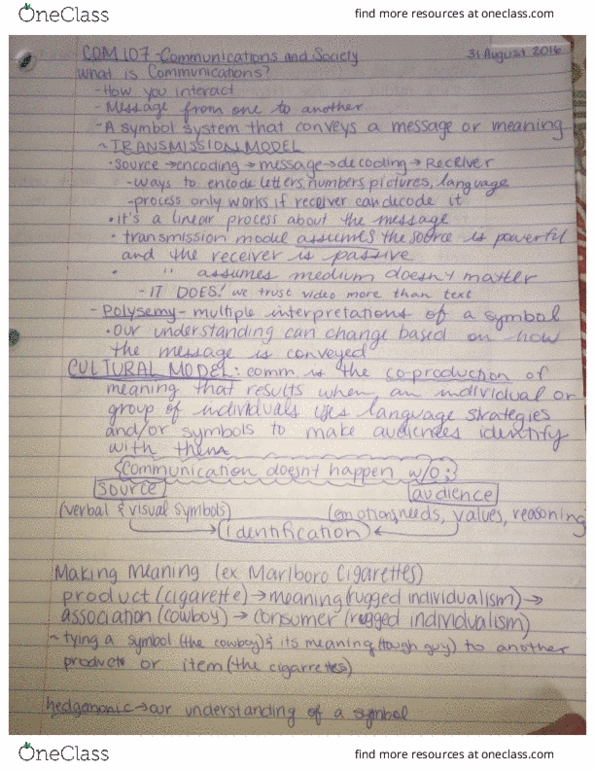 OneClass
find more resources at oneclass.com
COM 107 - Communications and Society 31 August 2016
What is Communications?
- How you interact
- Message from one to another
- A symbol system that conveys a message or meaning
~ TRANSMISSION MODEL
• Source → encoding → message → decoding → Receiver
- ways to encode letters, numbers, pictures, language
- process only works if receiver can decode it
• it's a linear process about the message
• transmission model assumes the source is powerful
and the receiver is passive
• " assumes medium doesn't matter
- IT DOES! we trust video more than text
- Polysemy - multiple interpretations of a symbol
• our understanding can change based on how
the message is conveyed
CULTURAL MODEL: comm is the co-production of
meaning that results when an individual or
group of individuals uses language strategies
and/or symbols to make audiences identify
with them
Communication doesn't happen w/o:
source audience
(verbal & visual symbols) (emotions, needs, values, reasoning
identification
Making Meaning (ex Marlboro Cigarettes)
product (cigarette) → meaning (rugged individualism) →
association (cowboy) → consumer (rugged individualism)
~ tying a symbol (the cowboy) & its meaning (tough guy) to another
products or item (the cigarretes)
hedgemonic → our understanding of a symbol
OneClass
find more resources at oneclass.com